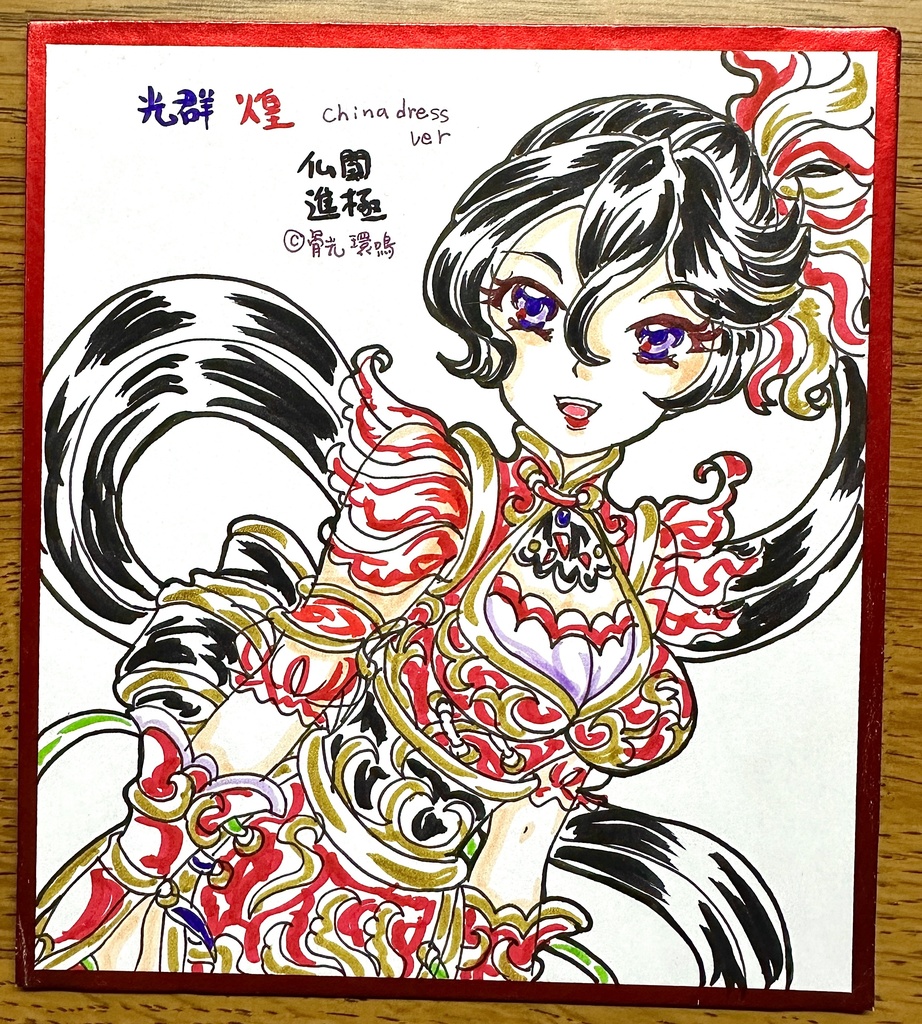 光群 煌 china dress
ver
仏国
進極
©骨光環鳴